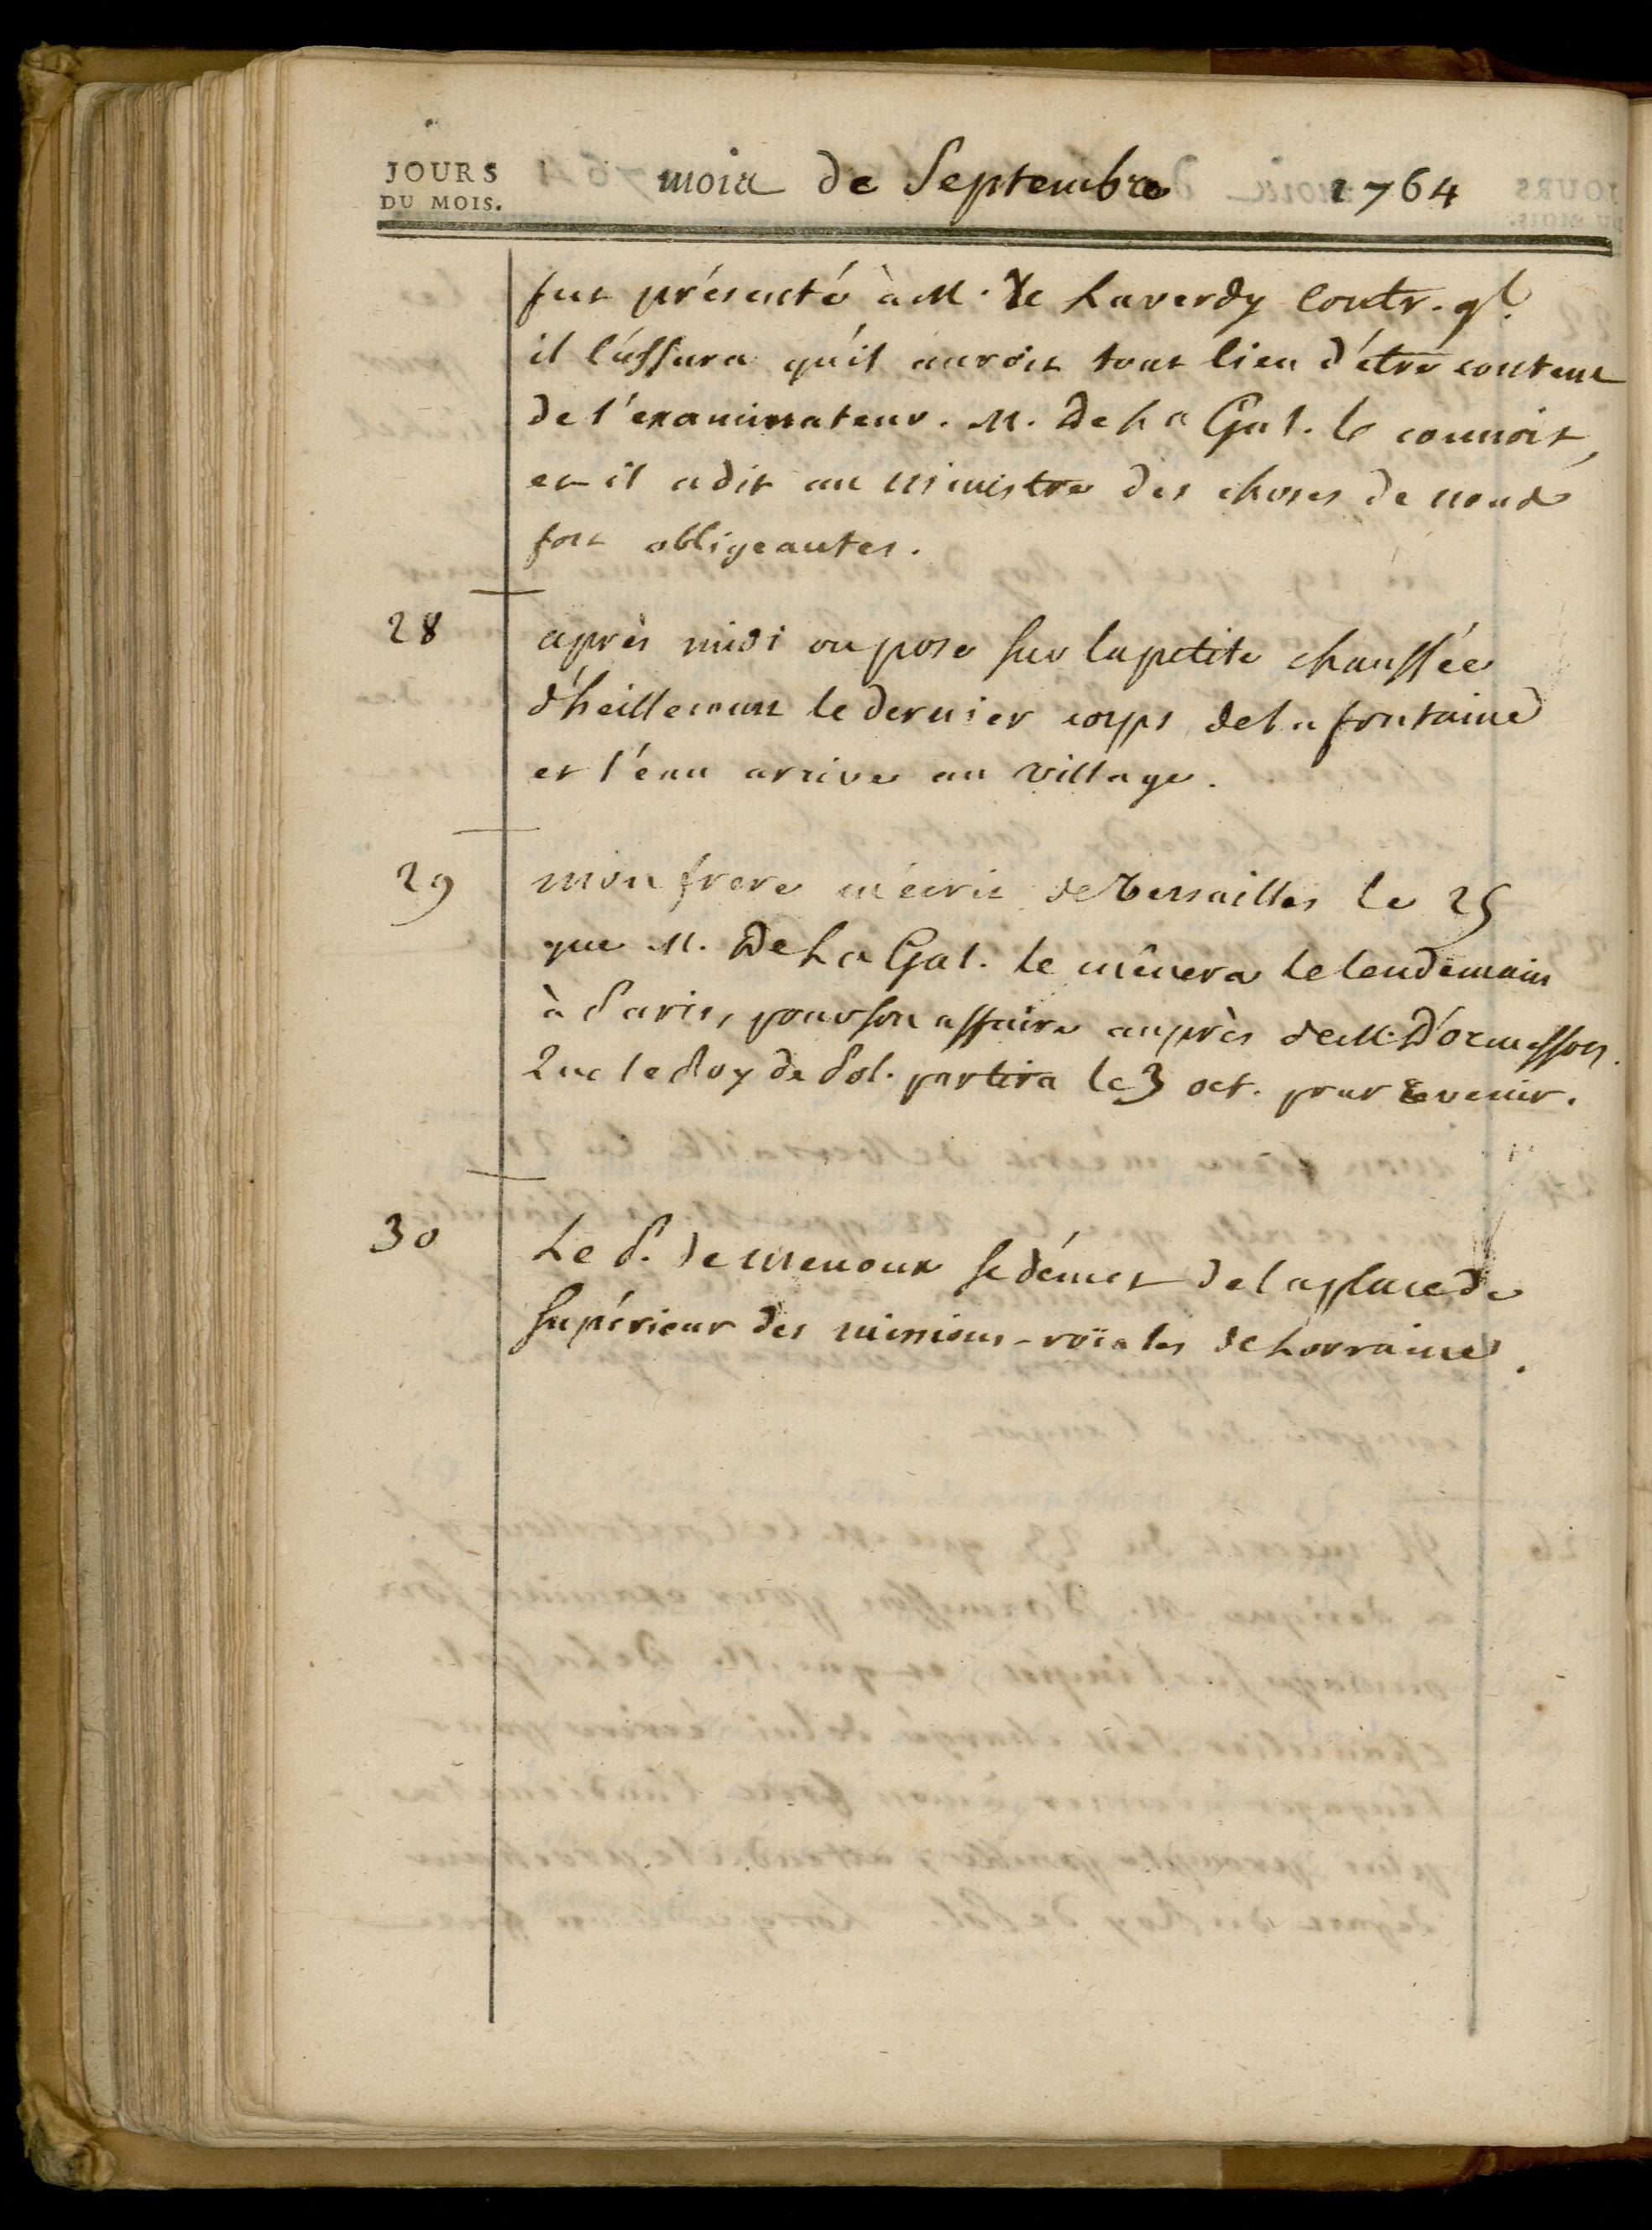 JOURS
DU MOIS.
mois de Septembre 1764
fut présenté à M. de Laverdy Contr. gl.
il l'assura qu'il auroit tout lieu d'être content
de l'examinateur. M. De La Gal. le connoit,
et il a dit au Ministre des choses de nous
fort obligeantes.
28 après midi on pose sur la petite chaussée
d'heillecourt le dernier corps de la fontaine
et l'eau arrive au village.
29 mon frere m'écrit de Versailles le 25
que M. De La Gal. le mênera le lendemain
à Paris, pour son affaire auprès de M. D'ormesson.
Que le Roy de Pol. partira le 3 oct. pour revenir.
30 Le P. de Menoux se démet de la place de
Supérieur des missions-roïales de Lorraine.